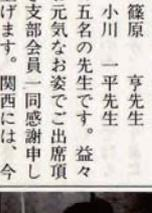 篠原　　亨先生
小川　一平先生
五名の先生です。益々
元気なお姿でご出席頂
支部会員一同感謝申し
げます。関西には、今